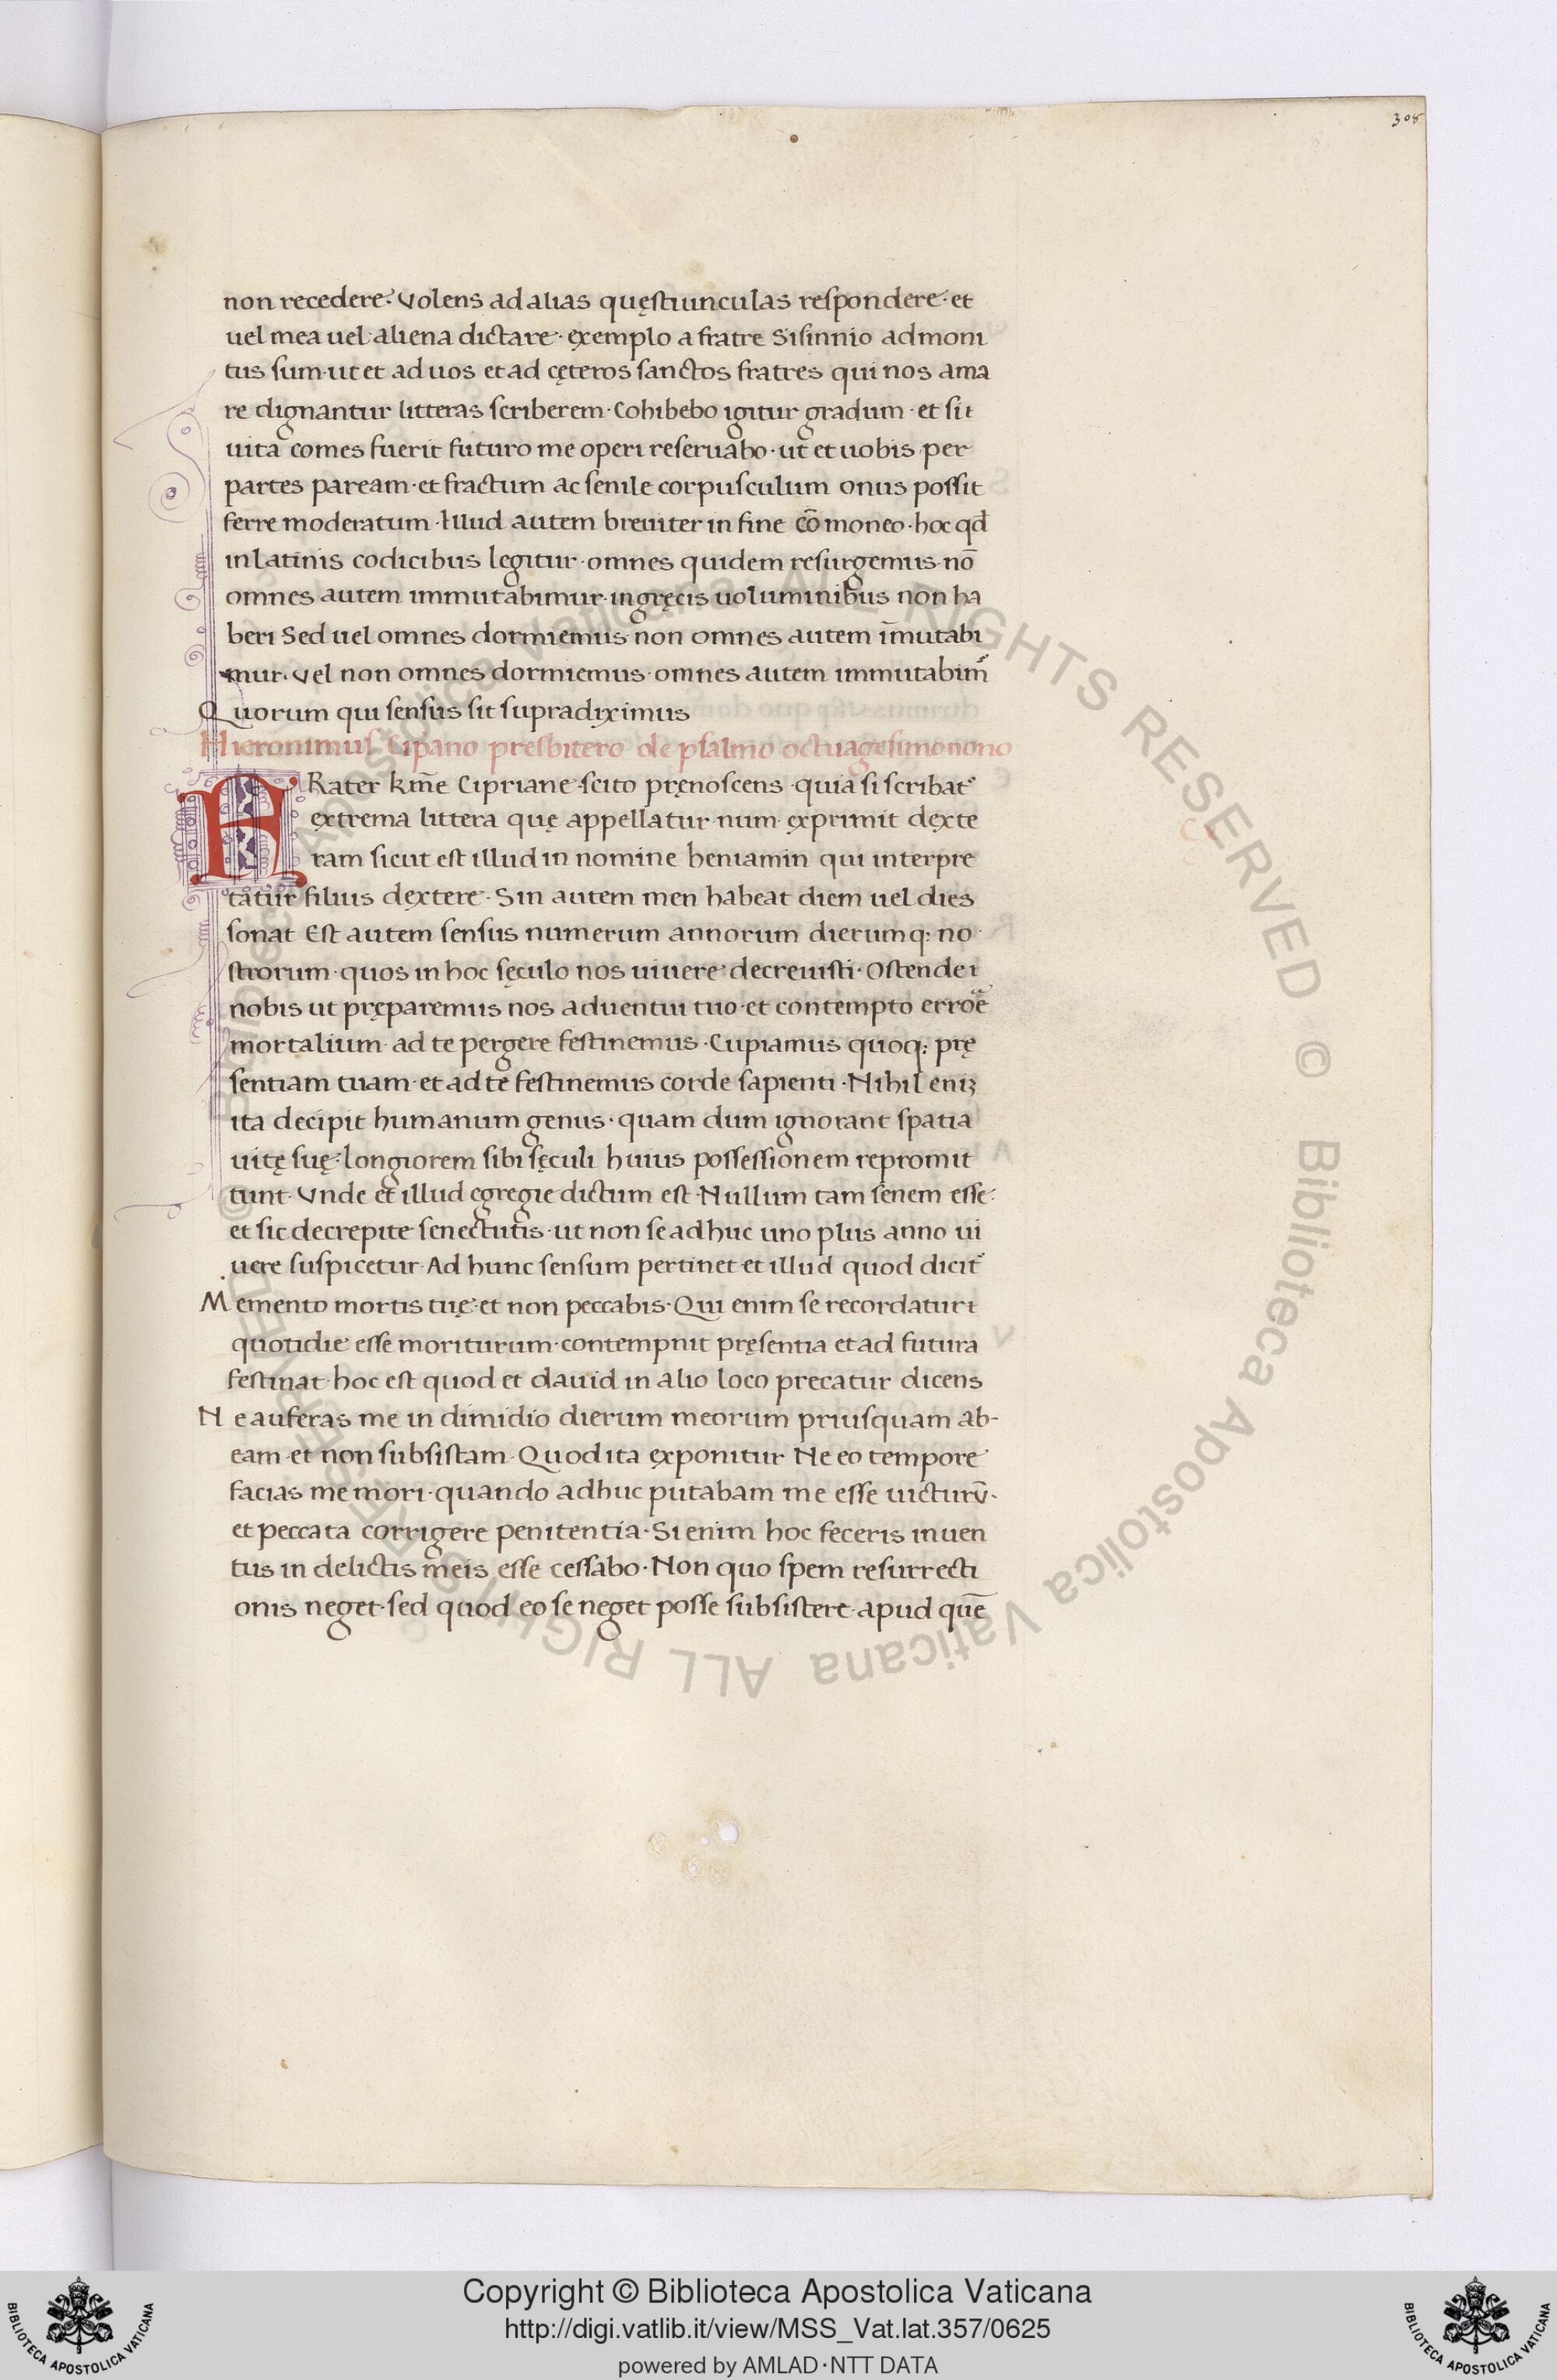 308
non recedere. Volens ad alias quęstiunculas respondere· et
uel mea uel aliena dictare· exemplo a fratre Sisinnio admoni
tus sum· ut et ad uos et ad cęteros sanctos fratres qui nos ama
re dignantur litteras scriberem· Cohibebo igitur gradum· et si
uita comes fuerit futuro me operi reseruabo· ut et uobis per
partes paream· et fractum ac senile corpusculum onus possit
ferre moderatum· Illud autem breuiter in fine cō moneo· hoc qđ
in latinis codicibus legitur· omnes quidem resurgemus· nō
omnes autem immutabimur· in gręcis uoluminibus non ha
beri Sed uel omnes dormiemus· non omnes autem īmutabi
mur. Vel non omnes dormiemus· omnes autem immutabim᷒
Quorum qui sensus sit supra diximus
Hieronimus Cipano presbitero de psalmo octuagesimonono
FRater km̄e Cipriane· scito pręnoscens· quia si scribat᷒
extrema littera quę appellatur num· exprimit dexte
ram sicut est illud in nomine beniamin qui interpre
tatur filius dextere· Sin autem men habeat diem uel dies
sonat Est autem sensus numerum annorum dierumq: no
strorum· quos in hoc sęculo nos uiuere decreuisti· Ostende
nobis ut pręparemus nos aduentui tuo· et contempto erroē
mortalium· ad te pergere festinemus· Cupiamus quoq: prę
sentiam tuam· et ad te festinemus corde sapienti· Nihil eniʒ
ita decipit humanum genus· quam dum ignorant spatia
uitę suę· longiorem sibi sęculi huius possessionem repromit
tunt· Vnde et illud egregie dictum est· Nullum tam senem esse·
et sic decrepite senectutis· ut non se adhuc uno plus anno ui
uere suspicetur· Ad hunc sensum pertinet et illud quod dicit᷒
Memento mortis tuę· et non peccabis· Qui enim se recordatur
quotidie esse moriturum· contempnit pręsentia et ad futura
festinat· hoc est quod et dauid in alio loco precatur dicens
Ne auferas me in dimidio dierum meorum priusquam ab-
eam· et non subsistam· Quod ita exponitur Ne eo tempore
facias me mori· quando adhuc putabam me esse uicturū·
et peccata corrigere penitentia· Si enim hoc feceris inuen
tus in delictis meis esse cessabo· Non quo spem resurrecti
onis neget· sed quod eo se neget posse subsistere· apud quē
© Biblioteca Apostolica Vaticana ALL RIGHTS RESERVED
Copyright © Biblioteca Apostolica Vaticana
http://digi.vatlib.it/view/MSS_Vat.lat.357/0625
powered by AMLAD·NTT DATA
BIBLIOTECA APOSTOLICA VATICANA
BIBLIOTECA APOSTOLICA VATICANA